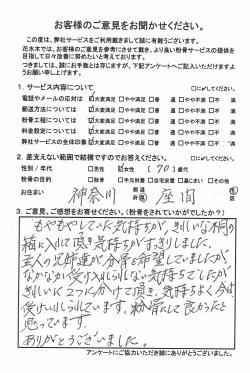 お客様のご意見をお聞かせください。
この度は、弊社サービスをご利用戴きまして誠に有難うございます。
花水木では、お客様のご意見を参考にさせて戴き、より良い粉骨サービスの提供を
目指して日々改善に努めたいと考えております。
つきましては、誠にお手数とは存じますが、下記アンケートへご記入いただけますよ
うお願い申し上げます。
1. サービス内容について □に✓してください。
電話やメールの応対は ☑大変満足 □やや満足 □普通 □やや不満 □不満
郵送方法について ☑大変満足 □やや満足 □普通 □やや不満 □不満
粉骨工程について ☑大変満足 □やや満足 □普通 □やや不満 □不満
料金設定について ☑大変満足 □やや満足 □普通 □やや不満 □不満
弊社サービスの全体印象 ☑大変満足 □やや満足 □普通 □やや不満 □不満
2. 差支えない範囲で結構ですのでお答えください。 □に✓してください。
性別 / 年代 □男性 ☑女性 ( 70 ) 歳代
粉骨の目的 □散骨 □手元供養 □自宅安置 □墓じまい □その他
お住まい 神奈川 都道府県 座間 市区
3. ご意見、ご感想をお寄せください。(粉骨をされていかがでしたか?)
もやもやしていた気持ちが、きれいな不同の
箱に入れて頂き気持ちがすっきりしました。
主人の兄姉達が分骨を希望していましたが、
なかなか受け入れられない気持ちでしたが
きれいに2つに分けて頂き、気持ちよく今は
受け入れられています。粉骨にして良かったと
思っています。
ありがとうございました。
アンケートにご協力いただき誠にありがとうございました。